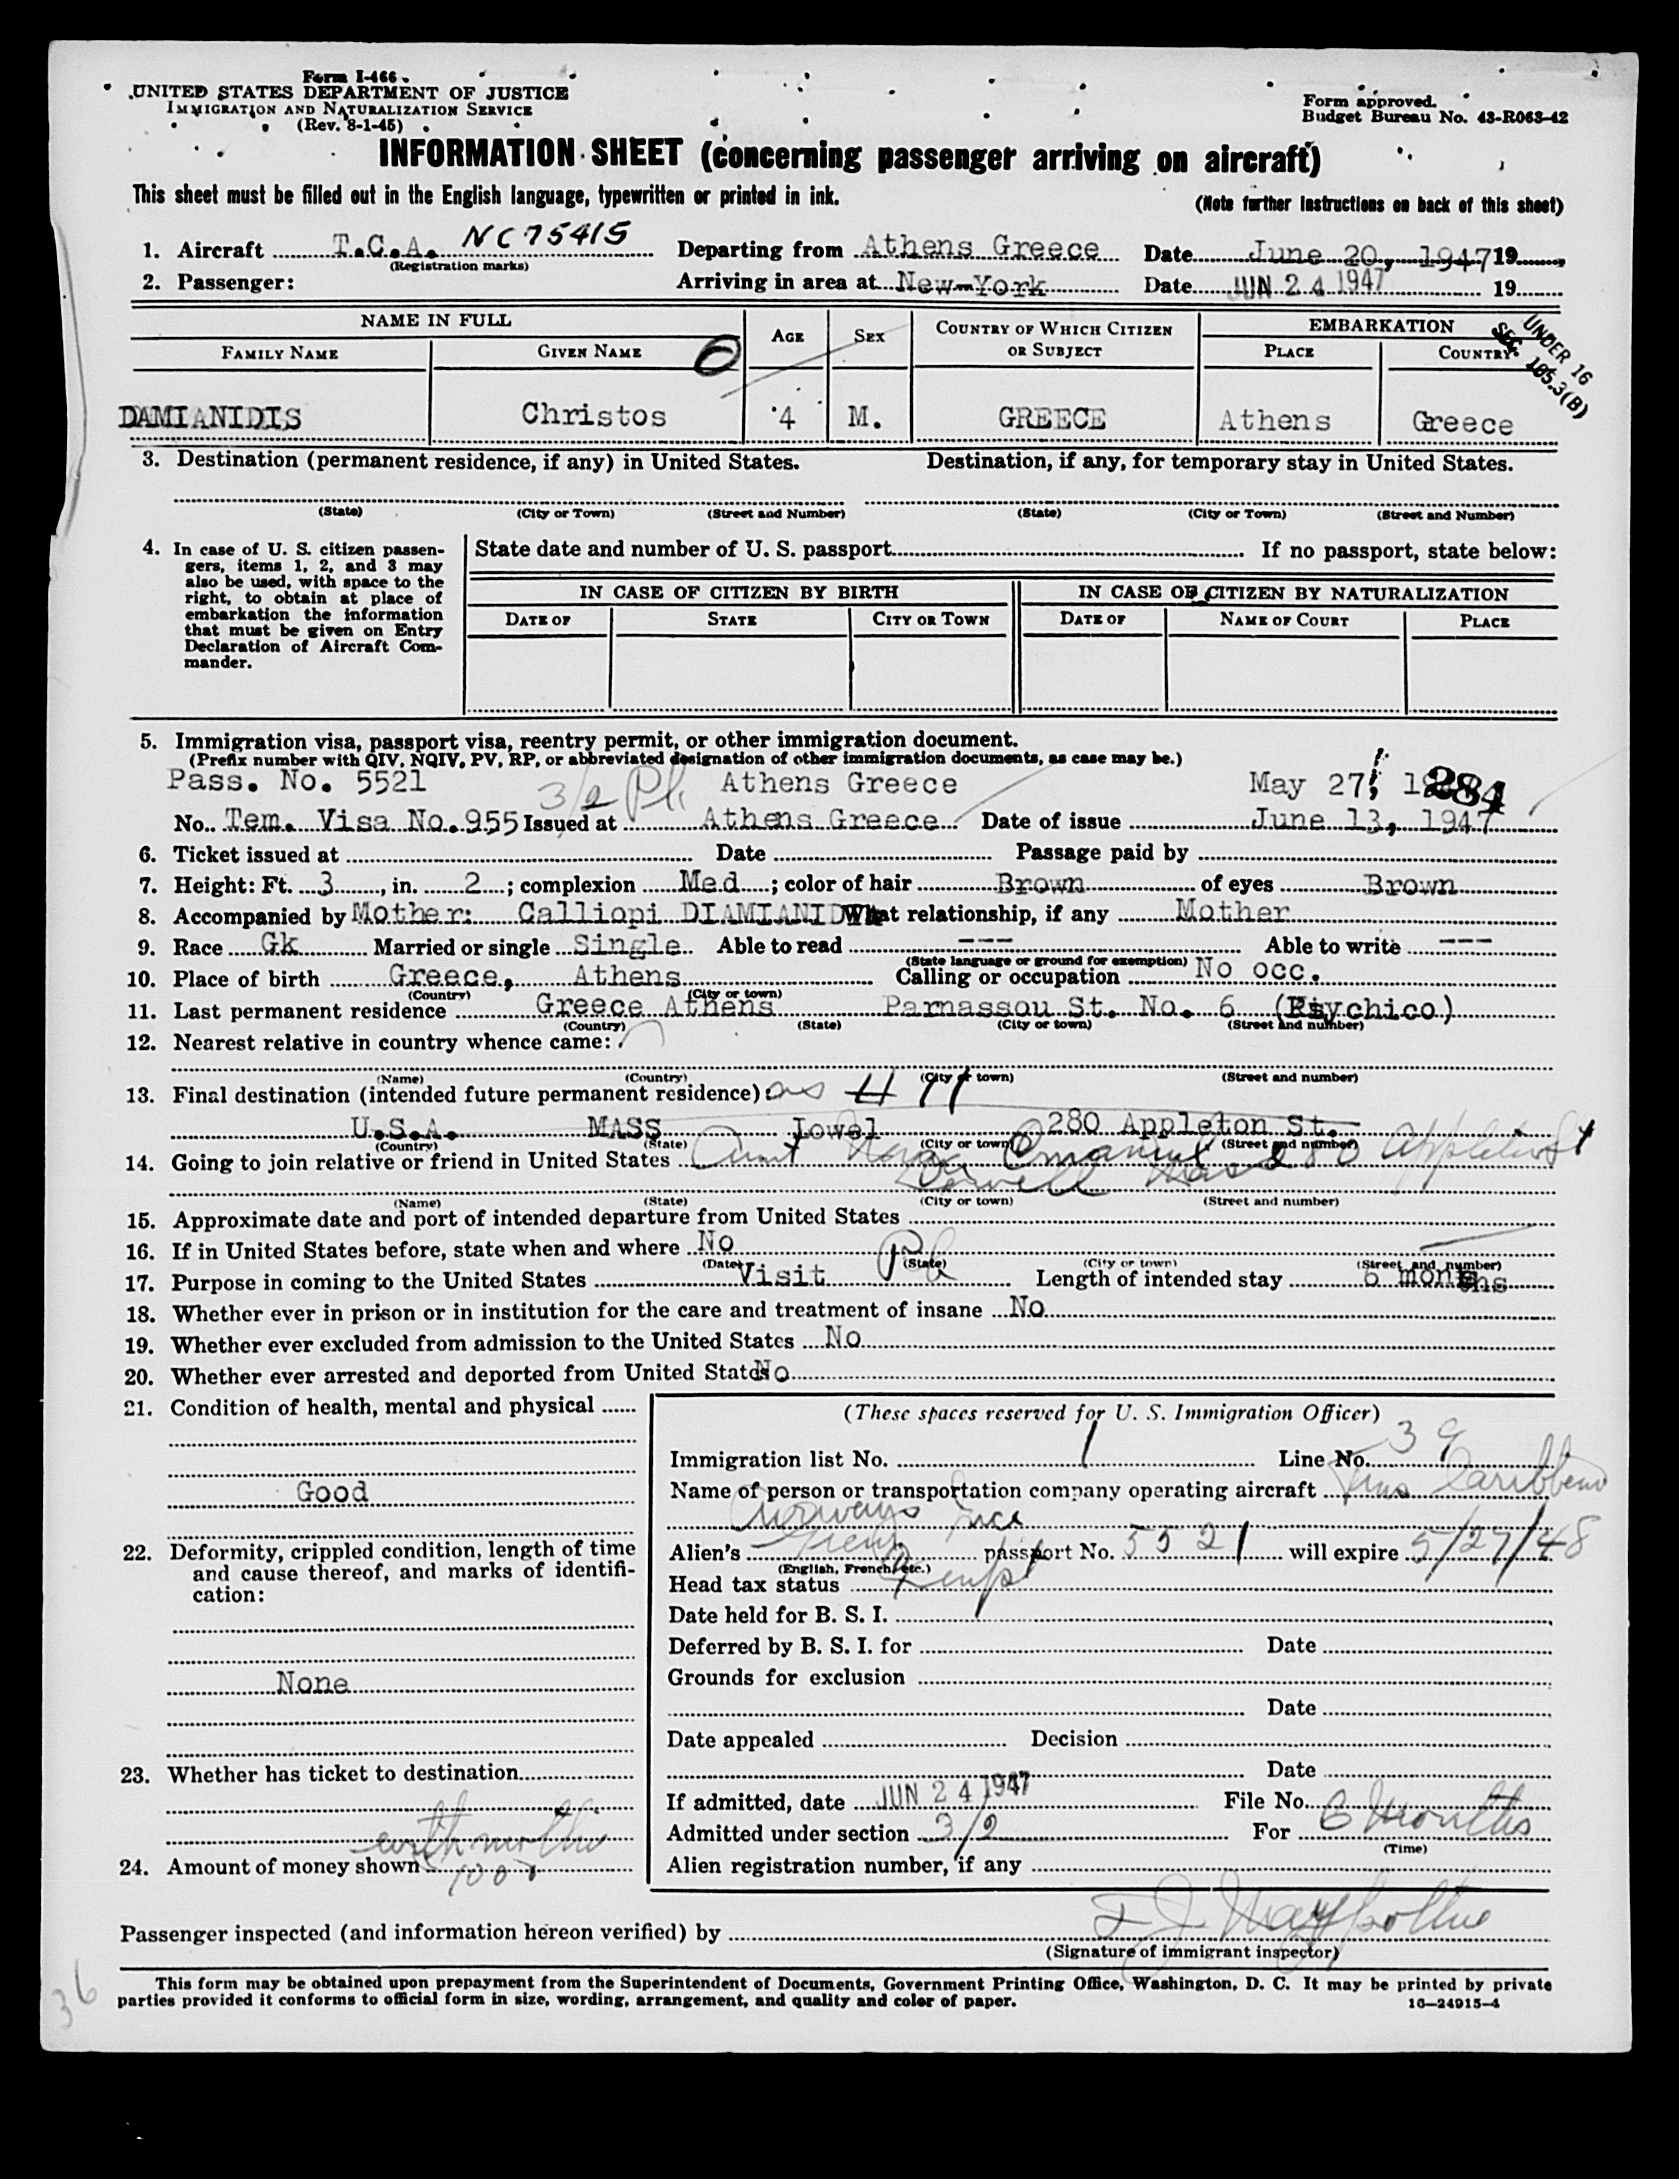 Form I-466
UNITED STATES DEPARTMENT OF JUSTICE
IMMIGRATION AND NATURALIZATION SERVICE
(Rev. 8-1-45)
Form approved.
Budget Bureau No. 43-R063-42
INFORMATION SHEET (concerning passenger arriving on aircraft)
This sheet must be filled out in the English language, typewritten or printed in ink.
(Note further instructions on back of this sheet)
1. Aircraft T.C.A. NC75415 Departing from Athens Greece Date June 20, 1947 19
(Registration marks)
2. Passenger: Arriving in area at New-York Date JUN 24 1947 19
NAME IN FULL AGE SEX COUNTRY OF WHICH CITIZEN OR SUBJECT EMBARKATION
FAMILY NAME GIVEN NAME PLACE COUNTRY
UNDER 16
SEC. 105.3(B)
DAMIANIDIS Christos 4 M. GREECE Athens Greece
3. Destination (permanent residence, if any) in United States. Destination, if any, for temporary stay in United States.
(State) (City or Town) (Street and Number) (State) (City or Town) (Street and Number)
4. In case of U. S. citizen passen-
gers, items 1, 2, and 3 may
also be used, with space to the
right, to obtain at place of
embarkation the information
that must be given on Entry
Declaration of Aircraft Com-
mander.
State date and number of U. S. passport If no passport, state below:
IN CASE OF CITIZEN BY BIRTH IN CASE OF CITIZEN BY NATURALIZATION
DATE OF STATE CITY OR TOWN DATE OF NAME OF COURT PLACE
5. Immigration visa, passport visa, reentry permit, or other immigration document.
(Prefix number with QIV, NQIV, PV, RP, or abbreviated designation of other immigration documents, as case may be.)
Pass. No. 5521 3/2 Athens Greece May 27, 284
No. Tem. Visa No.955 Issued at Athens Greece Date of issue June 13, 1947
6. Ticket issued at Date Passage paid by
7. Height: Ft. 3, in. 2; complexion Med; color of hair Brown of eyes Brown
8. Accompanied by Mother: Calliopi What relationship, if any Mother
9. Race Gk Married or single Single Able to read --- Able to write ---
(State language or ground for exemption)
10. Place of birth Greece, Athens Calling or occupation No occ.
(Country) (City or town)
11. Last permanent residence Greece Athens Parnassou St. No. 6 (Psychico)
(Country) (State) (City or town) (Street and number)
12. Nearest relative in country whence came:
(Name) (Country) (City or town) (Street and number)
13. Final destination (intended future permanent residence): as # 11
U.S.A. MASS Lowel 280 Appleton St.
(Country) (State) (City or town) (Street and number)
14. Going to join relative or friend in United States Aunt 280 Appleton St
Lowell Mass
(Name) (State) (City or town) (Street and number)
15. Approximate date and port of intended departure from United States
16. If in United States before, state when and where No
(Date) (State) (City or town) (Street and number)
17. Purpose in coming to the United States Visit Length of intended stay 6 months
18. Whether ever in prison or in institution for the care and treatment of insane No
19. Whether ever excluded from admission to the United States No
20. Whether ever arrested and deported from United States No
21. Condition of health, mental and physical
Good
22. Deformity, crippled condition, length of time
and cause thereof, and marks of identifi-
cation:
None
23. Whether has ticket to destination
with mother
24. Amount of money shown 1000
(These spaces reserved for U. S. Immigration Officer)
Immigration list No. 1 Line No. 39
Name of person or transportation company operating aircraft Trans Caribbean
Airways Inc
Alien's Greek passport No. 5521 will expire 5/27/48
(English, French, etc.)
Head tax status Exempt
Date held for B. S. I.
Deferred by B. S. I. for Date
Grounds for exclusion
Date
Date appealed Decision
Date
If admitted, date JUN 24 1947 File No.
Admitted under section 3/2 For 6 Months
(Time)
Alien registration number, if any
Passenger inspected (and information hereon verified) by
(Signature of immigrant inspector)
36
This form may be obtained upon prepayment from the Superintendent of Documents, Government Printing Office, Washington, D. C. It may be printed by private
parties provided it conforms to official form in size, wording, arrangement, and quality and color of paper.
16—24915-4